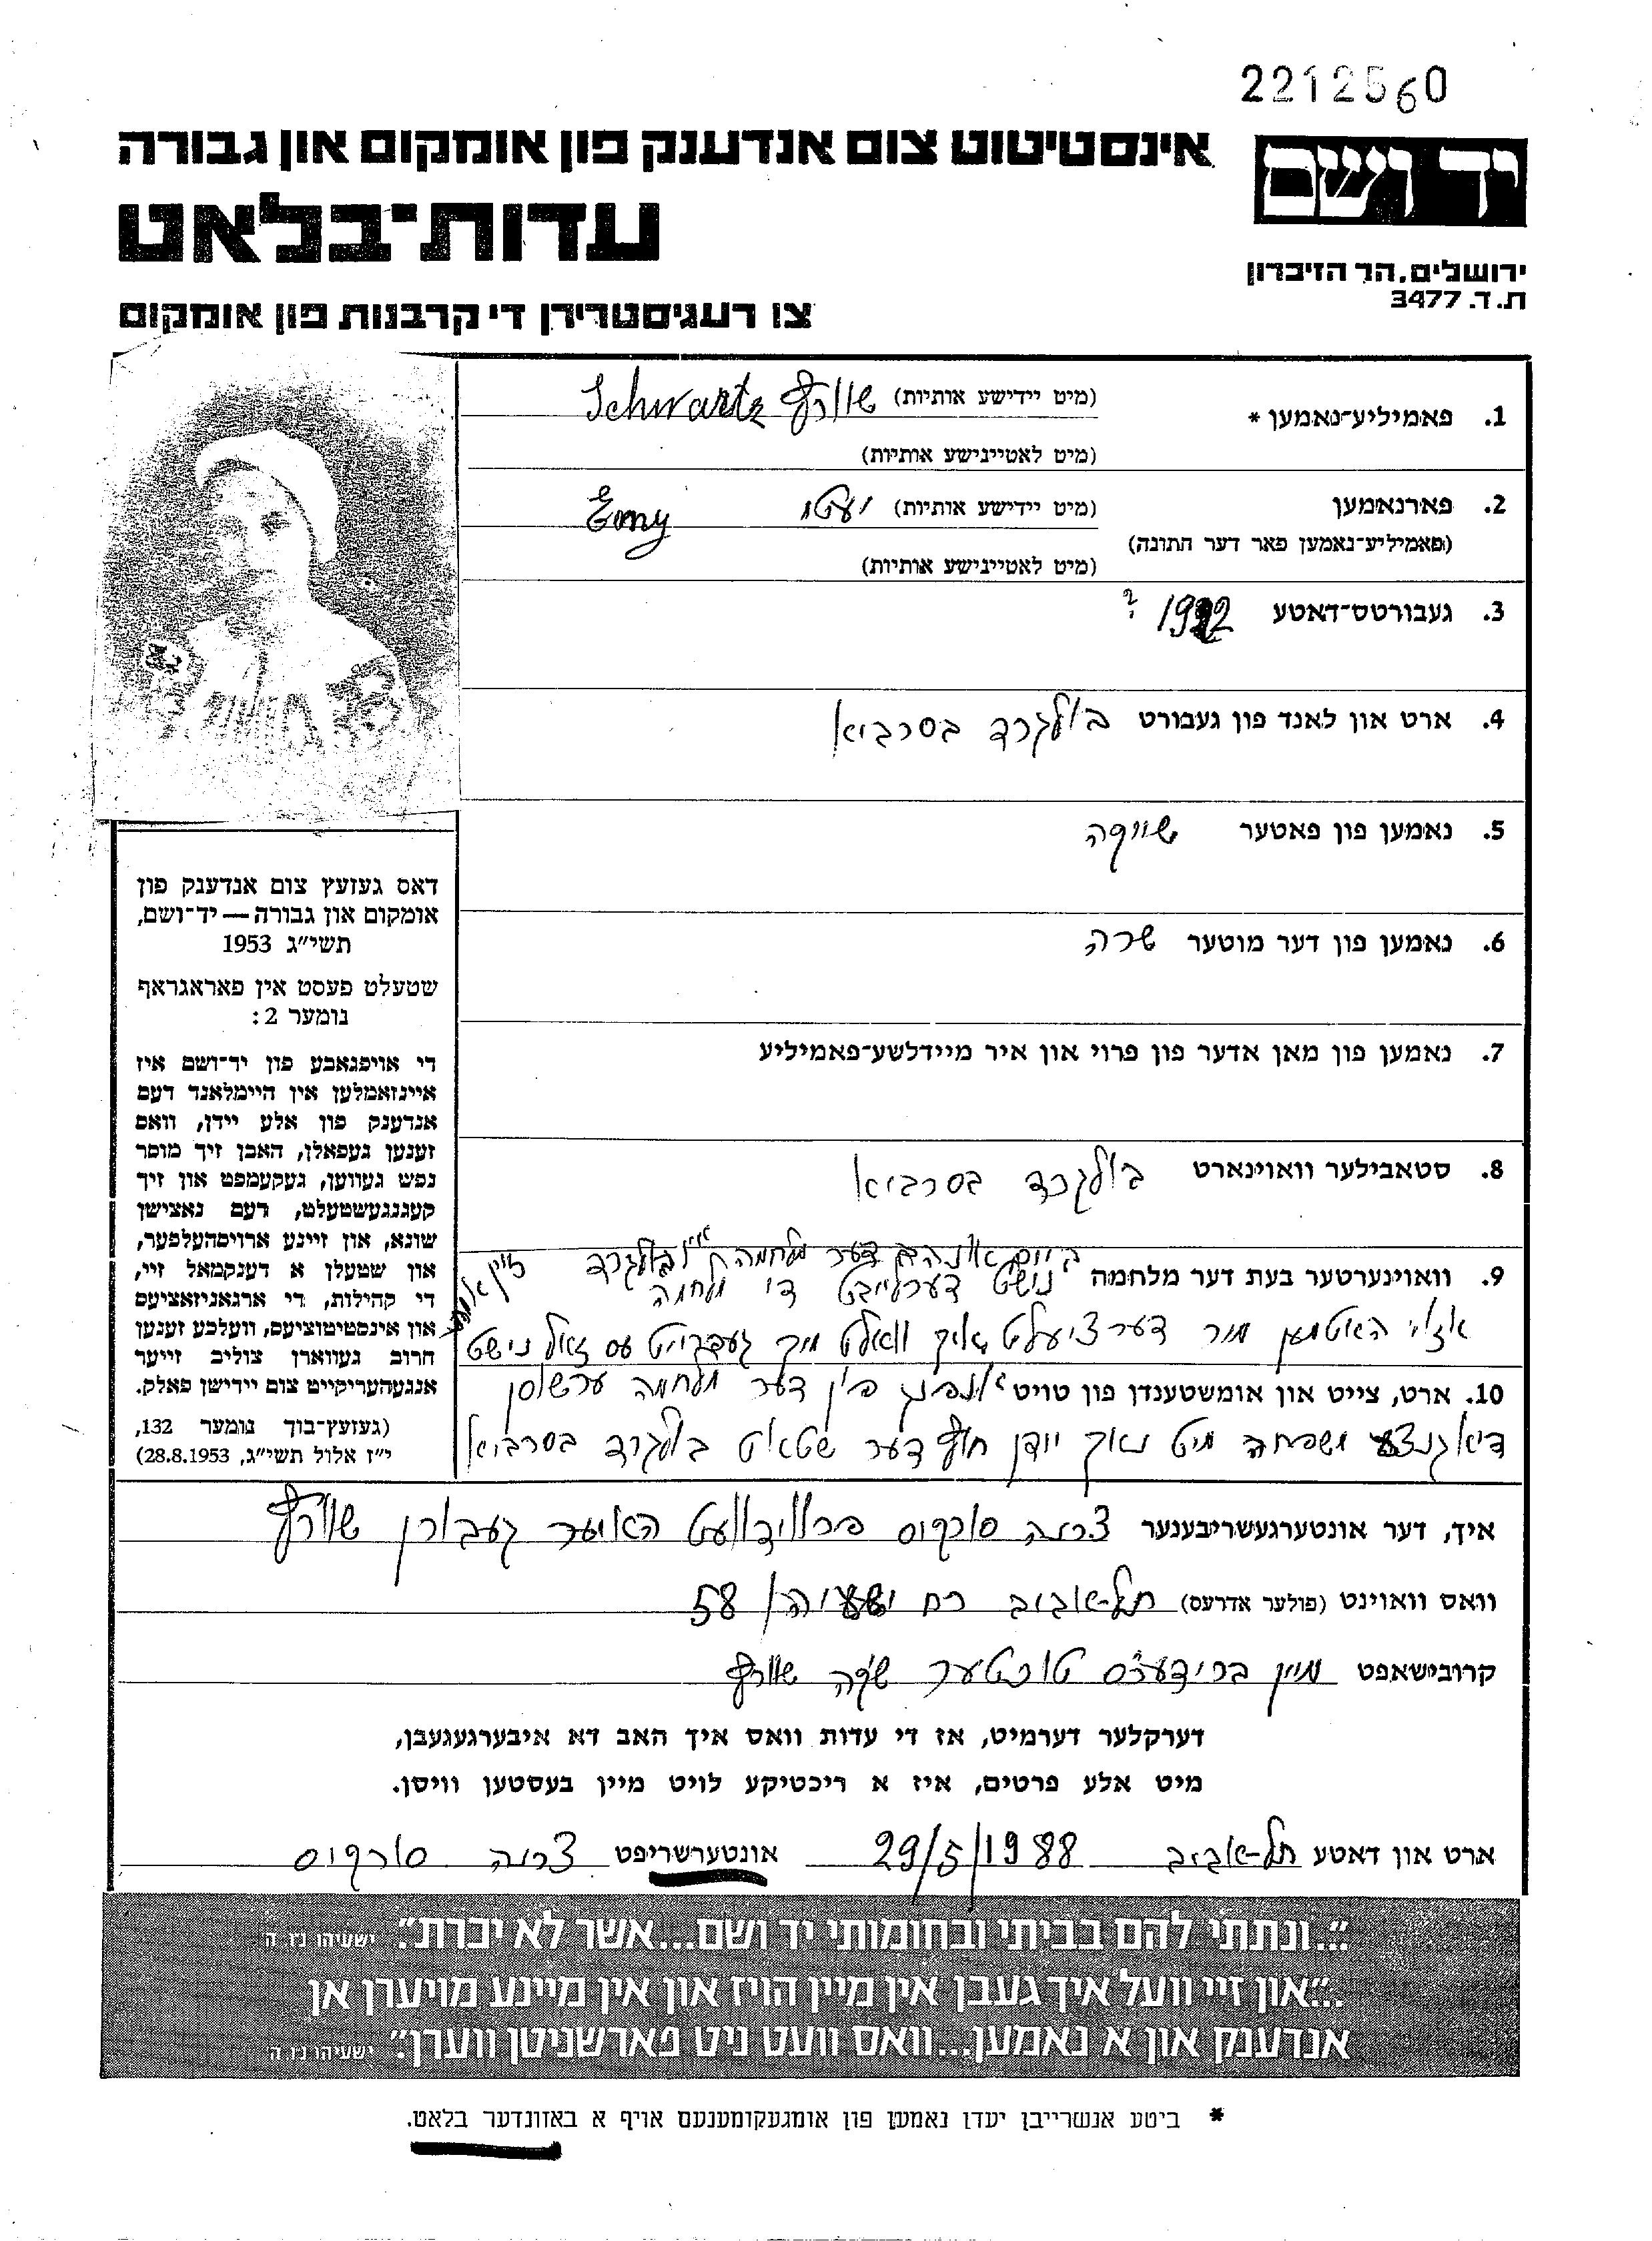 2212560
אינסטיטוט צום אנדענק פון אומקום און גבורה
יד ושם
עדות-בלאט
ירושלים, הר הזיכרון
ת.ד. 3477
צו רעגיסטרירן די קרבנות פון אומקום
1. פאמיליע-נאמען * (מיט יידישע אותיות) שווארץ Schwartz
(מיט לאטייגישע אותיות)
2. פארנאמען (מיט יידישע אותיות) Emy
(פאמיליע-נאמען פאר דער חתונה)
(מיט לאטייגישע אותיות)
3. געבורטס-דאטע 1922 ?
4. ארט און לאנד פון געבורט בולגרד בסרביא
5. נאמען פון פאטער
6. נאמען פון דער מוטער שרה
7. נאמען פון מאן אדער פון פרוי און איר מיידלשע-פאמיליע
8. סטאבילער וואוינארט בולגרד בסרביא
9. וואוינערטער בעת דער מלחמה דער מלחמה בולגרד
נישט דערלייבט די מלחמה
אזוי האט מען מיר דערציילט איך וואלט מיך געפרייט עס זאל נישט
10. ארט, צייט און אומשטענדן פון טויט אנפנג פין דער מלחמה ערשוסן
די גנצע משפחה מיט נאך יודן חוץ דער שטאט בולגרד בסרביא
דאס געזעץ צום אנדענק פון
אומקום און גבורה — יד-ושם,
תשי״ג 1953
שטעלט פעסט אין פאראגראף
נומער 2:
די אויפגאבע פון יד-ושם איז
איינזאמלען אין היימלאנד דעם
אנדענק פון אלע יידן, וואס
זענען געפאלן, האבן זיך מוסר
נפש געווען, געקעמפט און זיך
קעגנגעשטעלט, דעם נאצישן
שונא, און זיינע ארויסהעלפער,
און שטעלן א דענקמאל זיי,
די קהילות, די ארגאניזאציעס
און אינסטיטוציעס, וועלכע זענען
חרוב געווארן צוליב זייער
אנגעהעריקייט צום יידישן פאלק.
(געזעץ-בוך נומער 132,
י״ז אלול תשי״ג, 28.8.1953)
איך, דער אונטערגעשריבענער צרנה מרקוס געבורן שווארץ
וואס וואוינט (פולער אדרעס) תל-אביב רח ישעיהו 58
קרובישאפט מיין ברידער׳ס טוכטער שווארץ
דערקלער דערמיט, אז די עדות וואס איך האב דא איבערגעגעבן,
מיט אלע פרטים, איז א ריכטיקע לויט מיין בעסטען וויסן.
ארט און דאטע תל-אביב 29/5/1988 אונטערשריפט צרנה מרקוס
״...ונתתי להם בביתי ובחומותי יד ושם...אשר לא יכרת״. ישעיהו נ״ו, ה׳
״...און זיי וועל איך געבן אין מיין הויז און אין מיינע מויערן אן
אנדענק און א נאמען...וואס וועט ניט פארשניטן ווערן״. ישעיהו נ״ו, ה׳
* ביטע אנשרייבן יעדן נאמען פון אומגעקומענעם אויף א באזונדער בלאט.